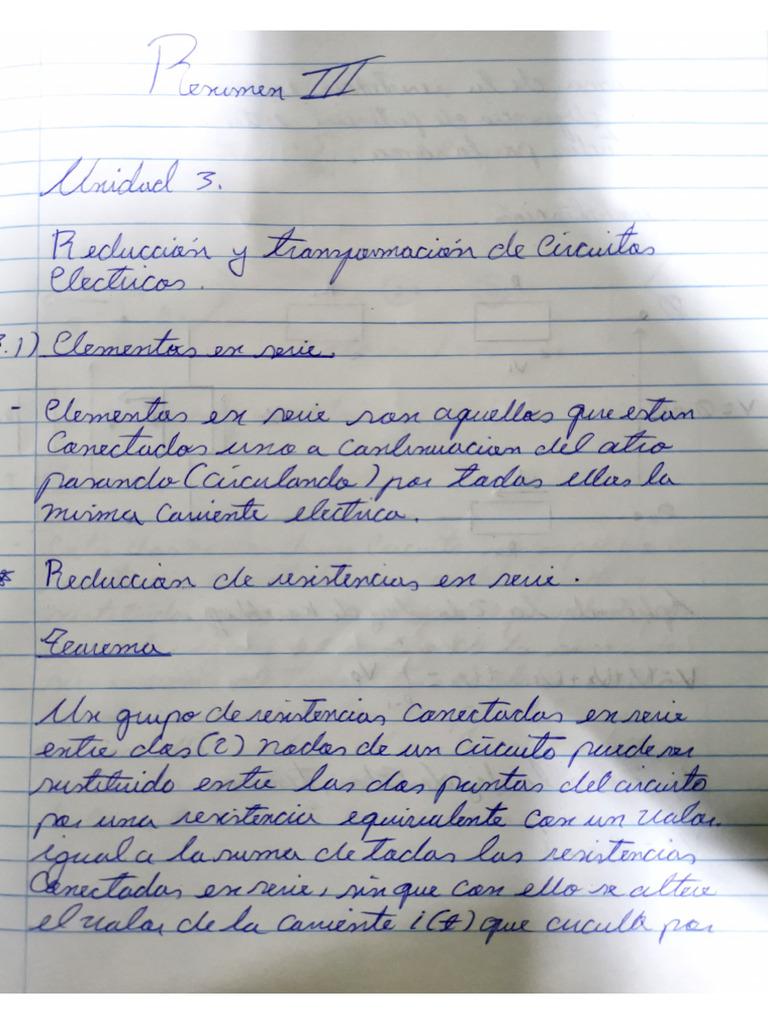 Resumen III
Unidad 3.
Reducción y transformación de Circuitos
Electricos.
3.1) Elementos en serie.
- Elementos en serie son aquellos que estan
Conectados uno a continuacion del otro
pasando (circulando) por todos ellos la
misma Corriente electrica.
* Reduccion de resistencias en serie.
Teorema
Un grupo de resistencias Conectadas en serie
entre dos (2) nodos de un circuito puede ser
sustituido entre los dos puntos del circuito
por una resistencia equivalente con un valor
igual a la suma de todas las resistencias
Conectadas en serie, sin que con ello se altere
el valor de la corriente i(t) que circula por